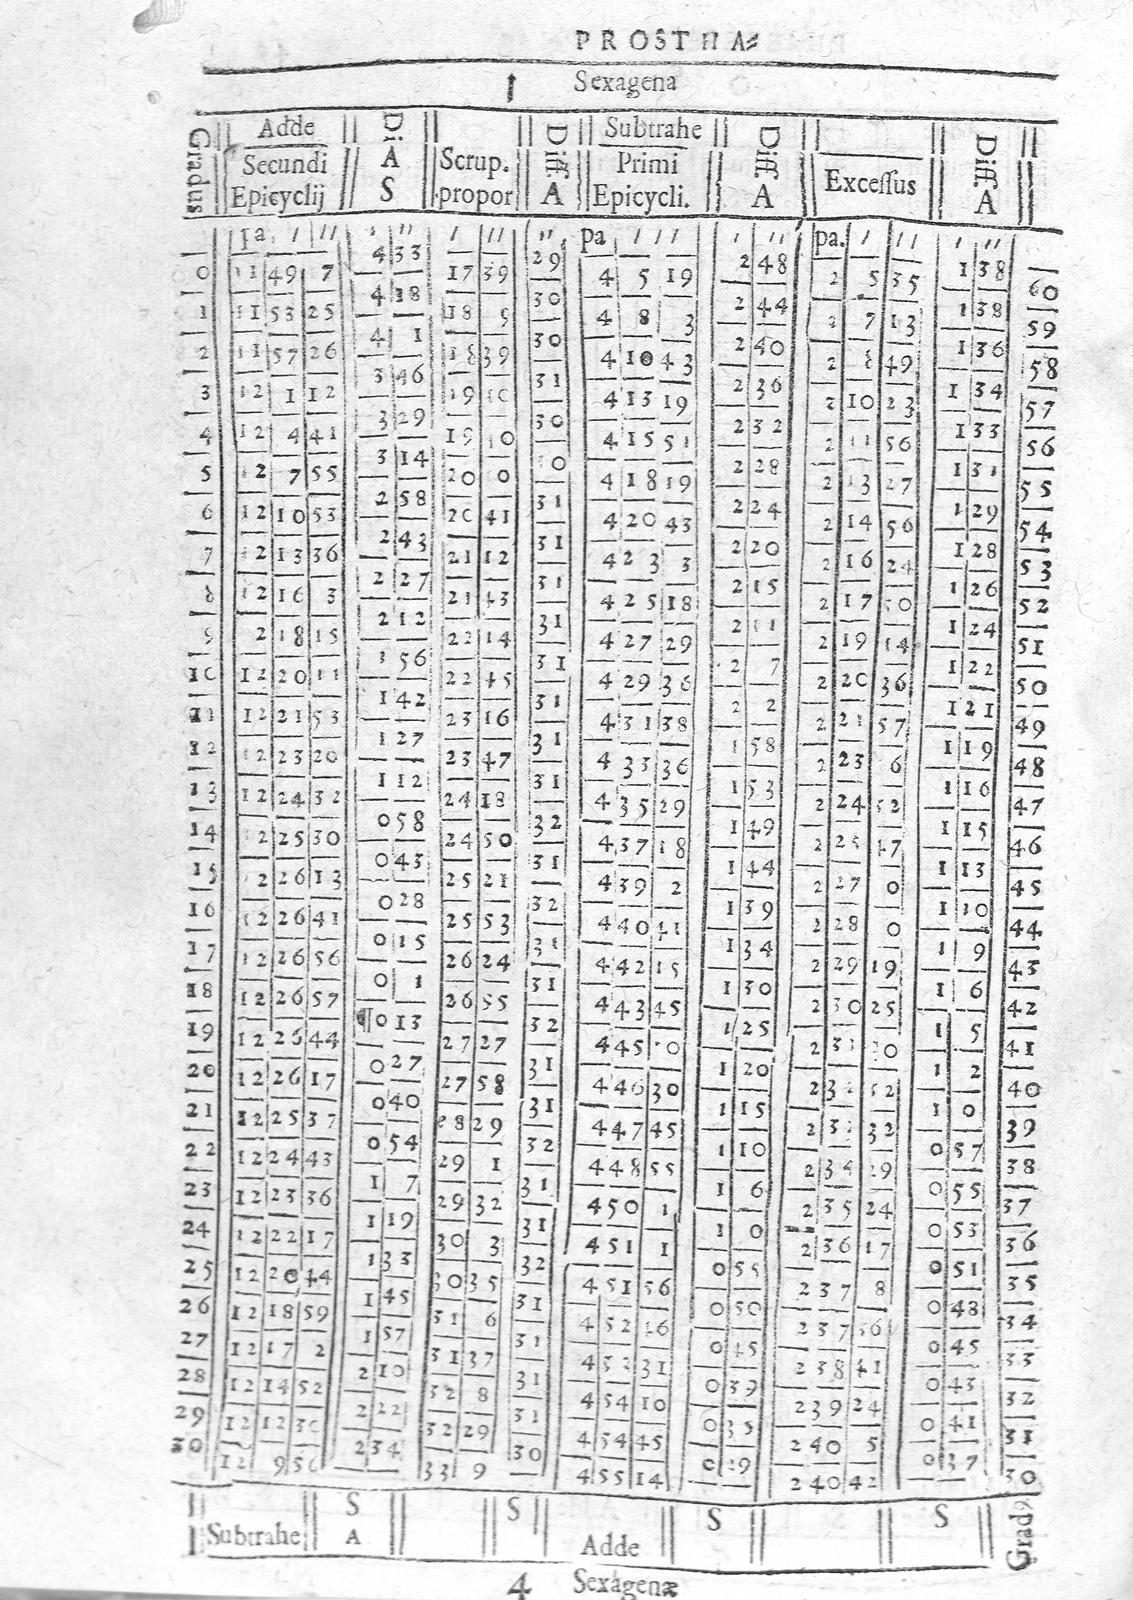 PROSTHA⸗
1 Sexagena
Gradus Adde Secundi Epicyclij Diff. A S Scrup. propor Diff. A Subtrahe Primi Epicycli. Diff. A Excessus Diff. A
pa ′ ″ ′ ″ ′ ″ ″ pa ′ ″ ′ ″ pa. ′ ″ ′ ″
0 11 49 7 4 33 17 39 29 4 5 19 2 48 2 5 35 1 38 60
1 11 53 25 4 18 18 9 30 4 8 3 2 44 2 7 13 1 38 59
2 11 57 26 4 1 18 39 30 4 10 43 2 40 2 8 49 1 36 58
3 12 1 12 3 46 19 10 31 4 13 19 2 36 2 10 23 1 34 57
4 12 4 41 3 29 19 30 4 15 51 2 32 2 11 56 1 33 56
5 12 7 55 3 14 20 0 4 18 19 2 28 2 13 27 1 31 55
6 12 10 53 2 58 20 41 31 4 20 43 2 24 2 14 56 1 29 54
7 12 13 36 2 43 21 12 31 4 23 3 2 20 2 16 24 1 28 53
8 12 16 3 2 27 21 43 31 4 25 18 2 15 2 17 1 26 52
9 2 18 15 2 12 22 14 31 4 27 29 2 11 2 19 14 1 24 51
10 12 20 11 1 56 22 45 31 4 29 36 2 7 2 20 36 1 22 50
11 12 21 53 1 42 23 16 31 4 31 38 2 2 2 21 57 1 21 49
12 12 23 20 1 27 23 47 31 4 33 36 1 58 2 23 6 1 19 48
13 12 24 32 1 12 24 18 31 4 35 29 1 53 2 24 52 1 16 47
14 12 25 30 0 58 24 50 32 4 37 18 1 49 2 25 47 1 15 46
15 2 26 13 0 43 25 21 31 4 39 2 1 44 2 27 0 1 13 45
16 12 26 41 0 28 25 53 32 4 40 41 1 39 2 28 0 1 10 44
17 12 26 56 0 15 26 24 31 4 42 15 1 34 2 29 19 1 9 43
18 12 26 57 0 1 26 55 31 4 43 45 1 30 2 30 25 1 6 42
19 12 26 44 ¶0 13 27 27 32 4 45 1 25 2 31 1 5 41
20 12 26 17 0 27 27 58 31 4 46 30 1 20 2 32 32 1 2 40
21 12 25 37 0 40 29 31 4 47 45 1 15 2 32 1 0 39
22 12 24 43 0 54 29 1 32 4 48 55 1 10 2 34 29 0 57 38
23 12 23 36 1 7 29 32 31 4 50 1 1 6 2 35 24 0 55 37
24 12 22 17 1 19 30 3 31 4 51 1 1 0 2 36 17 0 53 36
25 12 20 44 1 33 30 35 32 4 51 56 0 55 2 37 8 0 51 35
26 12 18 59 1 45 31 6 31 4 52 46 0 50 2 37 56 0 48 34
27 12 17 2 1 57 31 37 31 4 53 31 0 45 2 38 41 0 45 33
28 12 14 52 2 10 32 8 31 4 54 10 0 39 2 39 24 0 43 32
29 12 12 30 2 22 32 29 31 4 54 45 0 35 2 40 5 0 41 31
30 12 9 56 2 34 33 9 30 4 55 14 0 29 2 40 42 0 37 30
Subtrahe S A S Adde S S Grad⁹
4 Sexagenæ